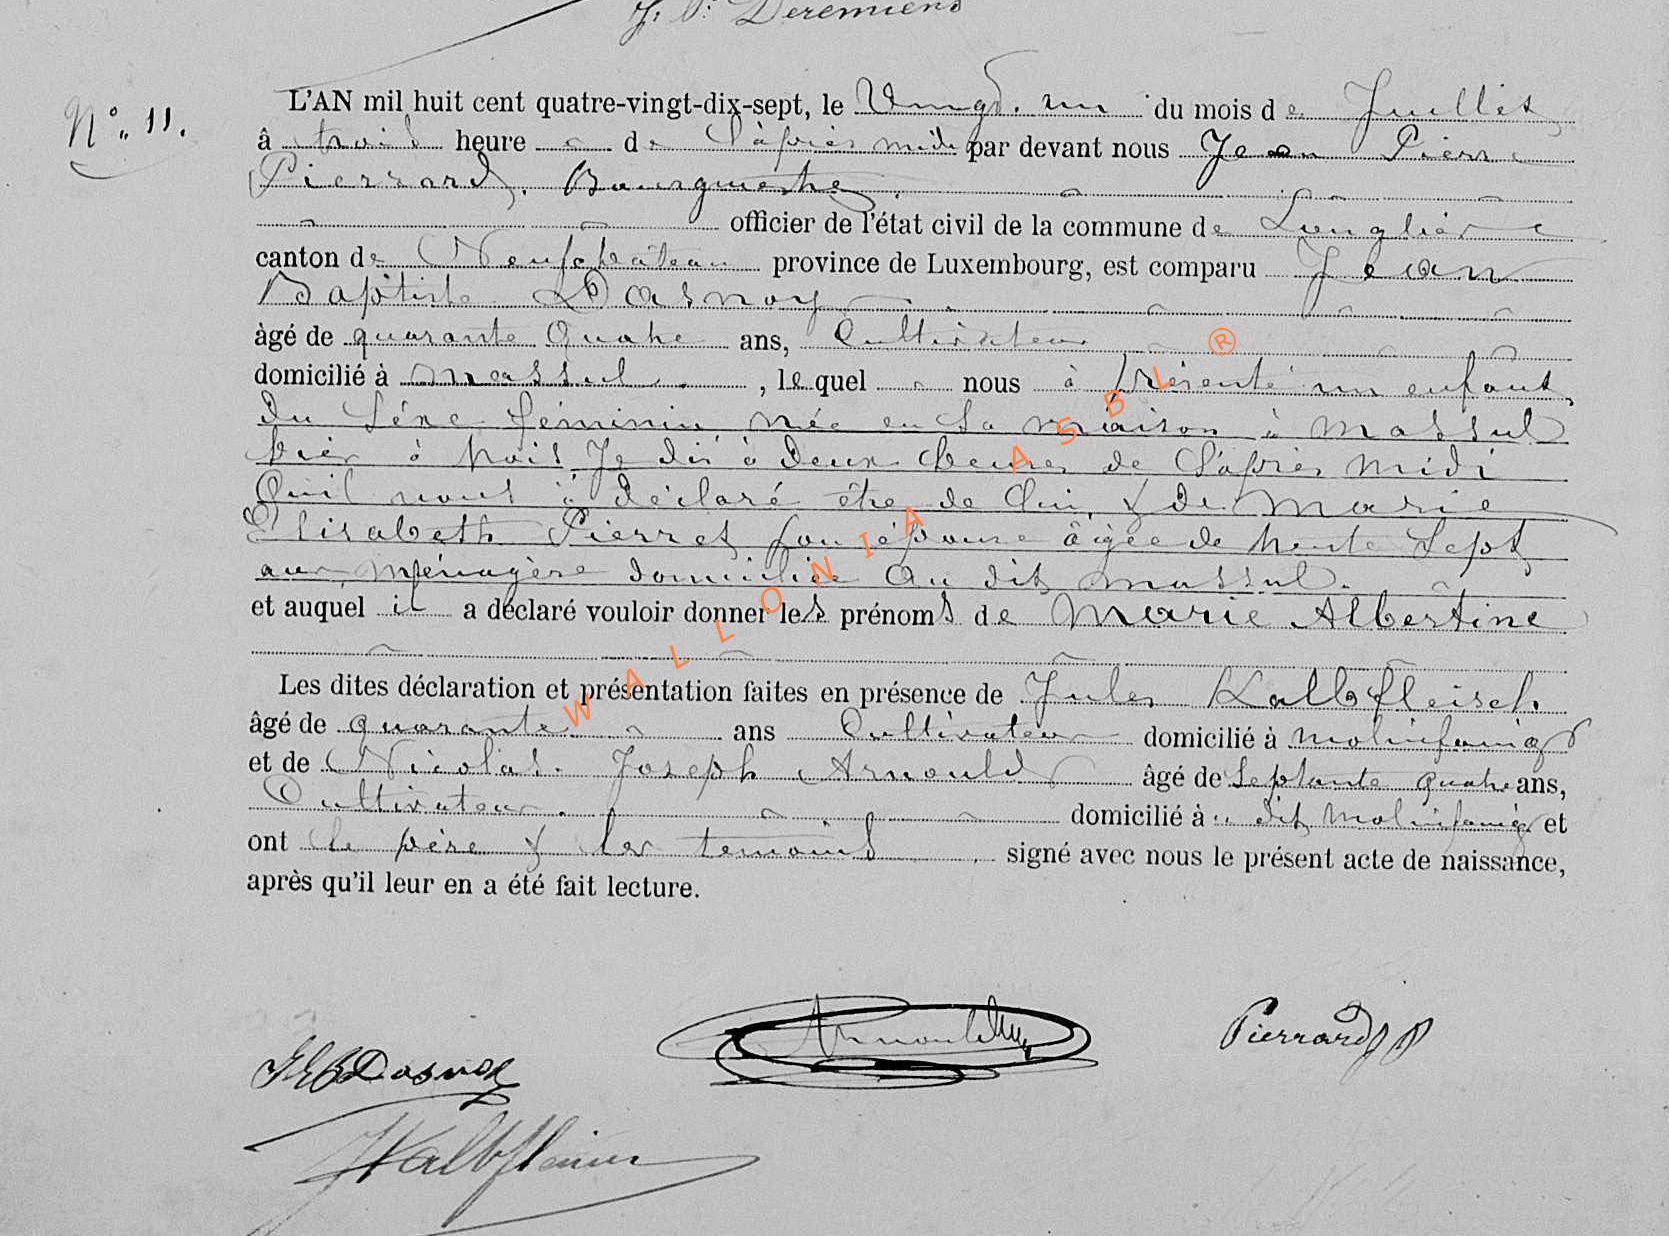 J. P. Deremiens
N° 11.
L'AN mil huit cent quatre-vingt-dix-sept, le Vingt un du mois de Juillet
à trois heure de l'après midi par devant nous Jean Pierre
Pierrard, Bourgmestre
officier de l'état civil de la commune de Longlier
canton de Neufchâteau province de Luxembourg, est comparu Jean
Baptiste Dasnoy
âgé de quarante Quatre ans, Cultivateur
domicilié à Massul, lequel nous à présenté un enfant
du Séxe féminin née en sa maison à Massul
hier à trois Je dis à deux heures de l'après midi
Qu'il nous à déclaré être de lui, & de Marie
Elisabeth Pierret son épouse âgée de trente Sept
ans, Ménagère domiciliée au dit Massul.
et auquel il a déclaré vouloir donner les prénoms de Marie Albertine
Les dites déclaration et présentation faites en présence de Jules Kalbfleisch
âgé de quarante ans Cultivateur domicilié à Molinfaing
et de Nicolas Joseph Arnould âgé de Septante quatre ans,
Cultivateur domicilié à u dit Molinfaing et
ont le père & les temoins signé avec nous le présent acte de naissance,
après qu'il leur en a été fait lecture.
WALLONIA ASBL ®
Arnould Pierrard JP
JB Dasnoy